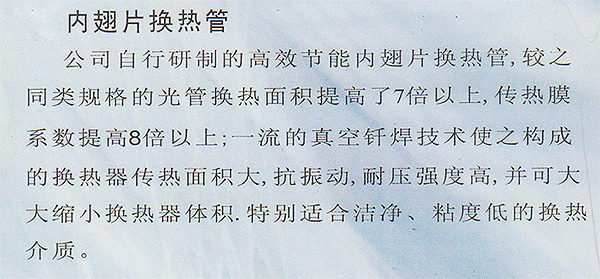 内翅片换热管
公司自行研制的高效节能内翅片换热管,较之
同类规格的光管换热面积提高了7倍以上,传热膜
系数提高8倍以上;一流的真空钎焊技术使之构成
的换热器传热面积大,抗振动,耐压强度高,并可大
大缩小换热器体积.特别适合洁净、粘度低的换热
介质。